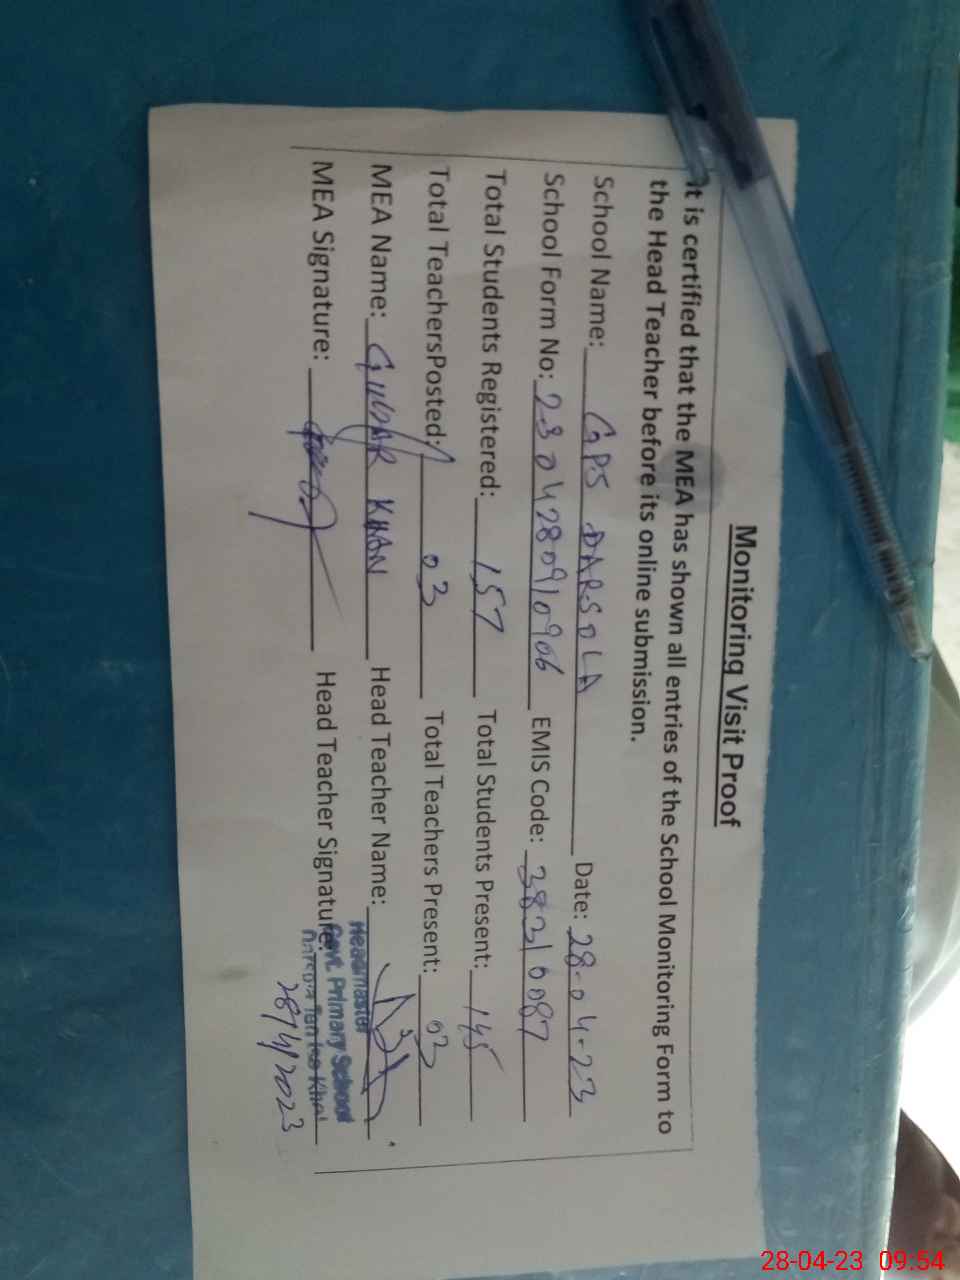 Monitoring Visit Proof
It is certified that the MEA has shown all entries of the School Monitoring Form to
the Head Teacher before its online submission.
School Name: GPS DARSOLA Date: 28-04-23
School Form No: 2304280910906 EMIS Code: 38310087
Total Students Registered: 157 Total Students Present: 145
Total TeachersPosted: 03 Total Teachers Present: 03
MEA Name: GULZAR KHAN Head Teacher Name:
MEA Signature: Head Teacher Signature:
Headmaster
Govt. Primary School
28/4/2023
28-04-23 09:54